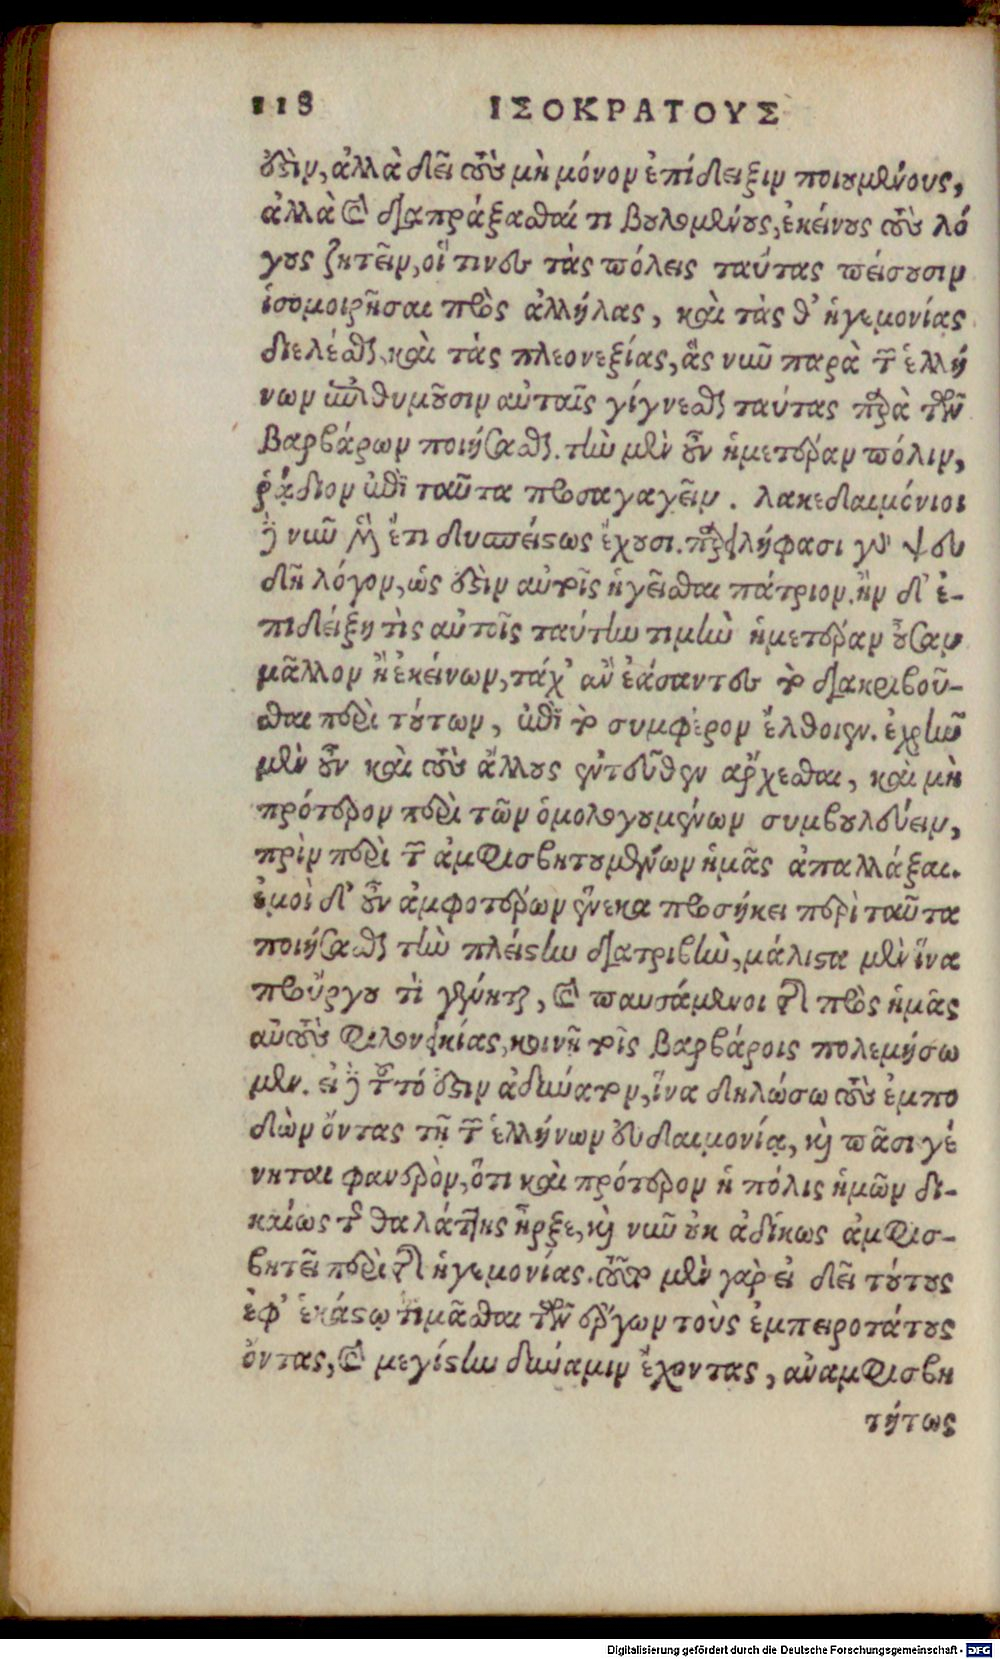 118 ΙΣΟΚΡΑΤΟΥΣ
δὲν, ἀλλὰ δεῖ τοὺς μὴ μόνον ἐπίδειξιν ποιουμένους,
ἀλλὰ καὶ διαπράξασθαί τι βουλομένους, ἐκείνους τοὺς λό
γους ζητεῖν, οἵ τινες τὰς πόλεις ταύτας πείσουσιν
ἰσομοιρῆσαι πρὸς ἀλλήλας, καὶ τὰς θ' ἡγεμονίας
διελέσθαι, καὶ τὰς πλεονεξίας, ἃς νῦν παρὰ τῶν ἑλλή
νων ἐπιθυμοῦσιν αὐταῖς γίγνεσθαι ταύτας παρὰ τῶν
βαρβάρων ποιήσασθαι. τὴν μὲν οὖν ἡμετέραν πόλιν,
ῥᾴδιον ἐπὶ ταῦτα προσαγαγεῖν. λακεδαιμόνιοι
δὲ νῦν μὲν ἔτι δυσπείστως ἔχουσι. παρειλήφασι γὰρ ψευ
δῆ λόγον, ὡς ἔστιν αὐτοῖς ἡγεῖσθαι πάτριον. ἢν δ' ἐ-
πιδείξῃ τὶς αὐτοῖς ταύτην τιμὴν ἡμετέραν οὖσαν
μᾶλλον ἢ ἐκείνων, τάχ' ἂν ἐάσαντες τὸ διακριβοῦ-
σθαι περὶ τούτων, ἐπὶ τὸ συμφέρον ἔλθοιεν. ἐχρῆν
μὲν οὖν καὶ τοὺς ἄλλους ἐντεῦθεν ἄρχεσθαι, καὶ μὴ
πρότερον περὶ τῶν ὁμολογουμένων συμβουλεύειν,
πρὶν περὶ τῶν ἀμφισβητουμένων ἡμᾶς ἀπαλλάξαι.
ἐμοὶ δ' οὖν ἀμφοτέρων ἕνεκα προσήκει περὶ ταῦτα
ποιήσασθαι τὴν πλείστην διατριβὴν, μάλιστα μὲν ἵνα
προὔργου τὶ γένηται, καὶ παυσάμενοι τῆς πρὸς ἡμᾶς
αὐτοὺς φιλονεικίας, κοινῇ τοῖς βαρβάροις πολεμήσω
μεν. εἰ δὲ τοῦτό ἐστιν ἀδύνατον, ἵνα δηλώσω τοὺς ἐμπο
δὼν ὄντας τῇ τῶν ἑλλήνων εὐδαιμονίᾳ, καὶ πᾶσι γέ
νηται φανερὸν, ὅτι καὶ πρότερον ἡ πόλις ἡμῶν δι-
καίως τῆς θαλάττης ἦρξε, καὶ νῦν οὐκ ἀδίκως ἀμφισ-
βητεῖ περὶ τῆς ἡγεμονίας. τοῦτο μὲν γὰρ εἰ δεῖ τούτους
ἐφ' ἑκάστῳ τιμᾶσθαι τῶν ἔργων τοὺς ἐμπειροτάτους
ὄντας, καὶ μεγίστην δύναμιν ἔχοντας, ἀναμφισβη
τήτως
Digitalisierung gefördert durch die Deutsche Forschungsgemeinschaft - DFG